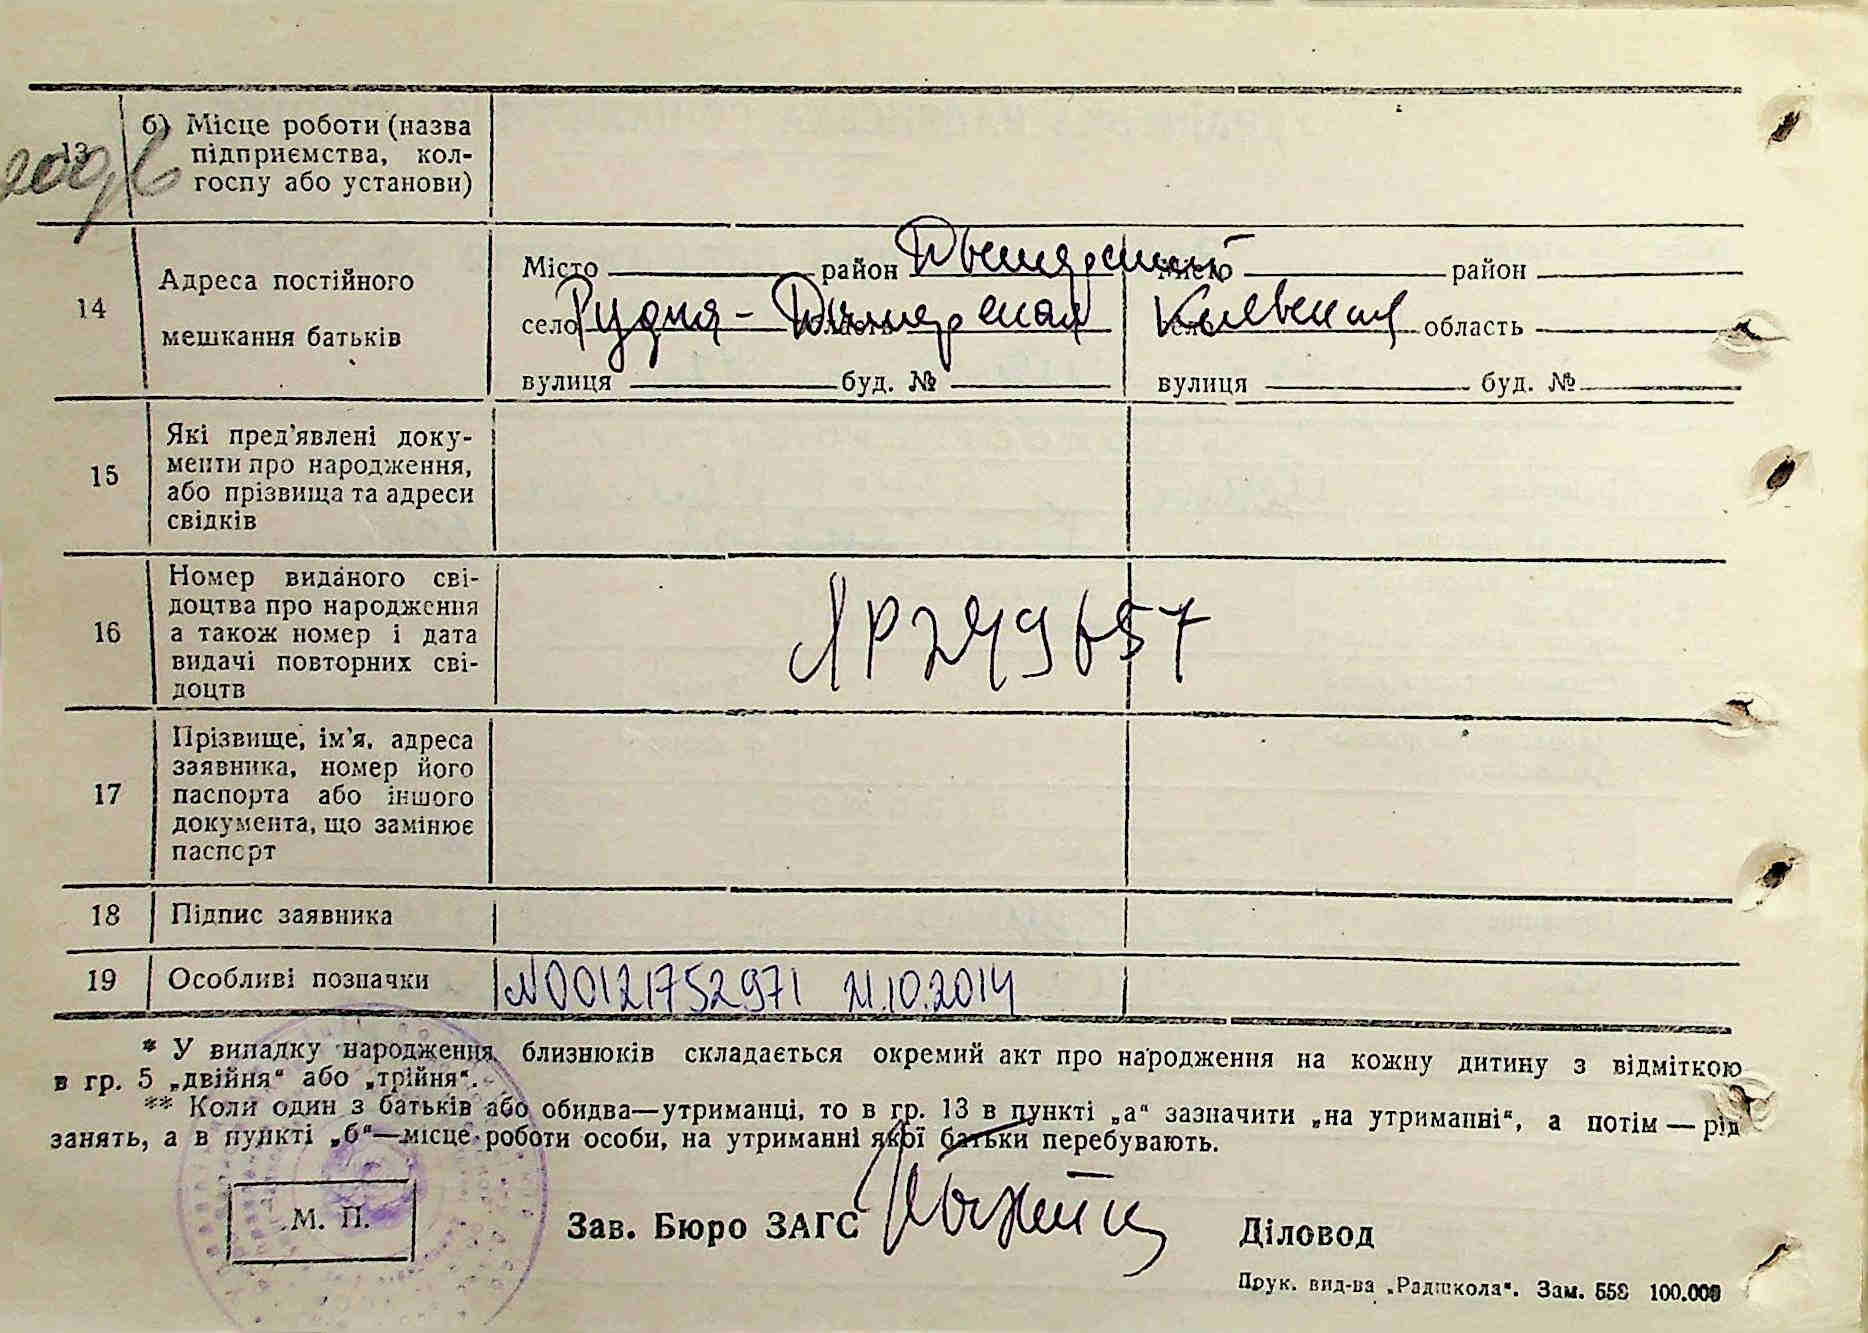 13
б) Місце роботи (назва
підприємства, кол-
госпу або установи)
14
Адреса постійного
мешкання батьків
Місто район Дымерский Місто район
село Рудня-Дымерская область Киевская село область
вулиця буд. № вулиця буд. №
15
Які пред'явлені доку-
менти про народження,
або прізвища та адреси
свідків
16
Номер виданого сві-
доцтва про народження
а також номер і дата
видачі повторних сві-
доцтв
ЛР249657
17
Прізвище, ім'я, адреса
заявника, номер його
паспорта або іншого
документа, що замінює
паспорт
18 Підпис заявника
19 Особливі позначки N00121752971 21.10.2014
* У випадку народження близнюків складається окремий акт про народження на кожну дитину з відміткою
в гр. 5 „двійня“ або „трійня“.
** Коли один з батьків або обидва—утриманці, то в гр. 13 в пункті „а“ зазначити „на утриманні“, а потім — рід
занять, а в пункті „б“—місце роботи особи, на утриманні якої батьки перебувають.
М. П.
Зав. Бюро ЗАГС
Діловод
Прук. вид-ва „Радшкола“. Зам. 558 100.000